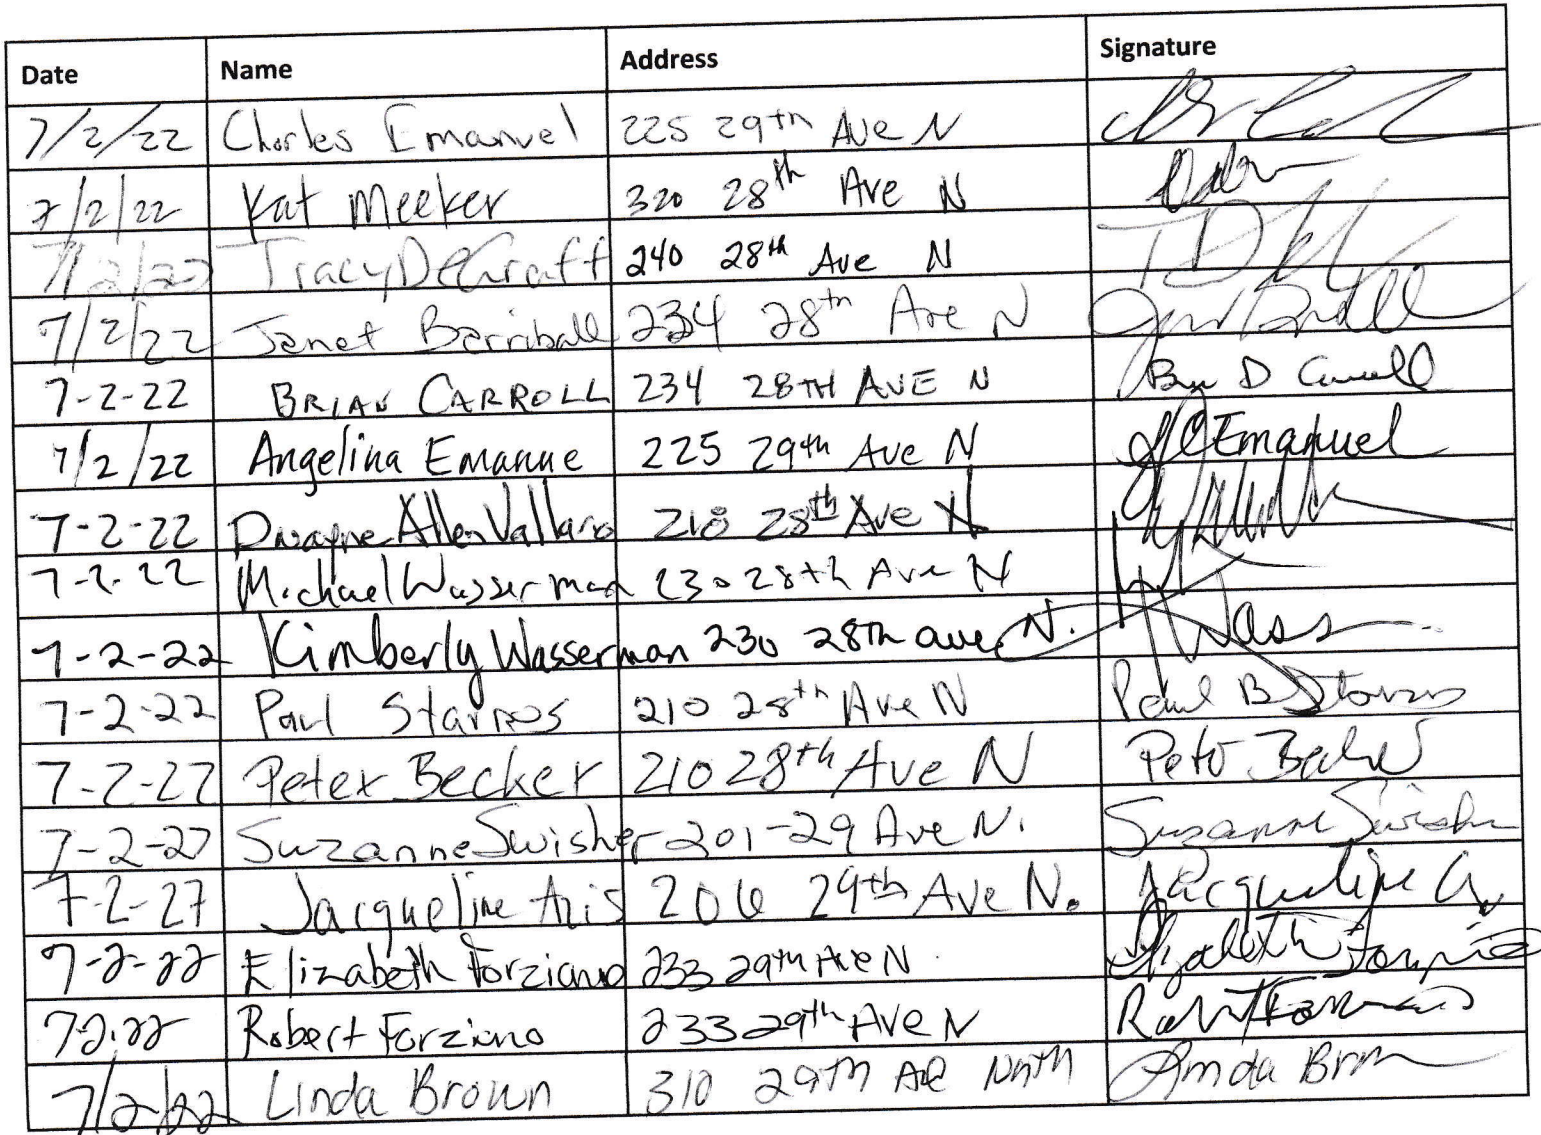 Date Name Address Signature
7/2/22 Charles Emanuel 225 29th Ave N
7/2/22 Kat Meeker 320 28th Ave N
7/2/22 Tracy DeGraft 240 28th Ave N
7/2/22 Janet Berriball 234 28th Ave N
7-2-22 BRIAN CARROLL 234 28TH AVE N
7/2/22 Angelina Emanue 225 29th Ave N Emanuel
7-2-22 Dwayne Allen Vallaro 218 28th Ave N
7-2-22 Michael Wasserman 230 28th Ave N
7-2-22 Kimberly Wasserman 230 28TH ave N. Wass
7-2-22 Paul Starnes 210 28th Ave N Paul B Starnes
7-2-22 Peter Becker 210 28th Ave N Peter Becker
7-2-22 Suzanne Swisher 201-29 Ave N. Suzanne Swisher
7-2-22 Jacqueline Aris 206 29th Ave N. Jacqueline A.
7-2-22 Elizabeth Forziano 233 29th Ave N Elizabeth Forziano
7.2.22 Robert Forziano 233 29th Ave N Robert Forziano
7/2/22 Linda Brown 310 29TH Ave North Linda Brown